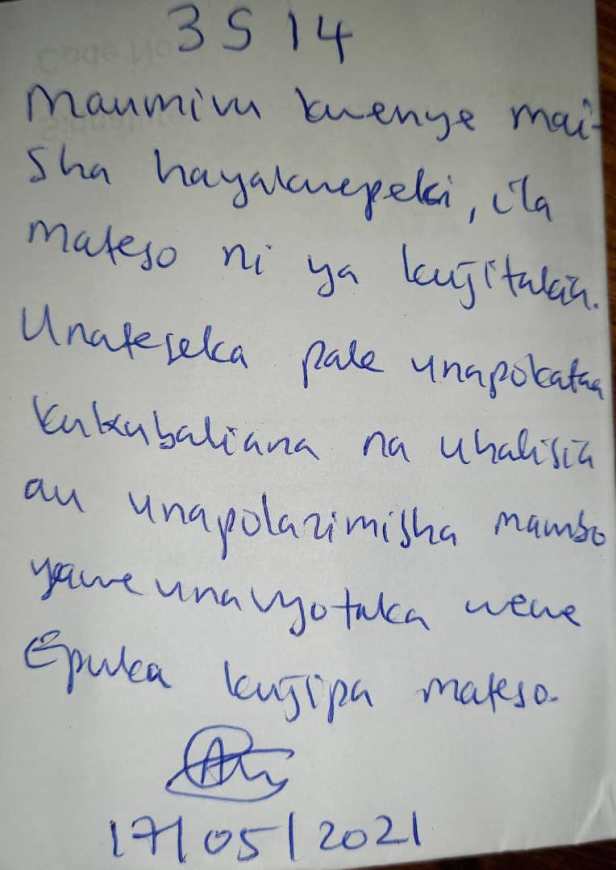 3 S 14
Maumivu kwenye mai-
sha hayakwepeki, ila
mateso ni ya kujitakia.
Unateseka pale unapokataa
kukubaliana na uhalisia
au unapolazimisha mambo
yawe unavyotaka wewe
Epuka kujipa mateso.
17/05/2021